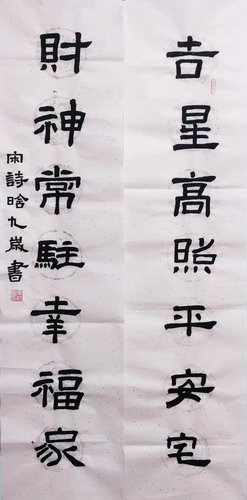 吉星高照平安宅
財神常駐幸福家
宋詩晗九歲書